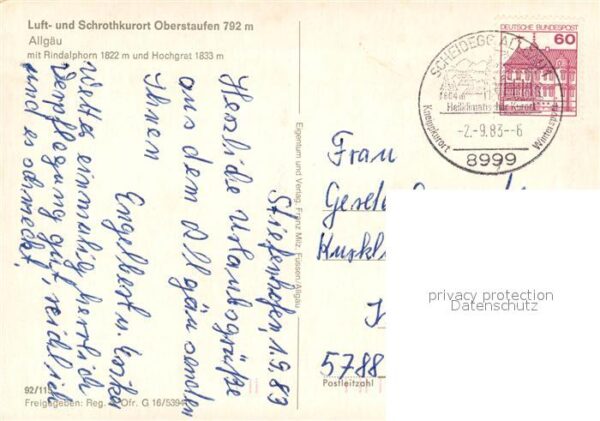 Luft- und Schrothkurort Oberstaufen 792 m
Allgäu
mit Rindalphorn 1822 m und Hochgrat 1833 m
Stiefenhofen, 1.9.83
Herzliche Urlaubsgrüße
aus dem Allgäu senden
Ihnen
Engelbert u.
Wetter einmalig herrlich
Verpflegung gut, reichlich
und es schmeckt.
92/115
Freigegeben: Reg. OFr. G 16/5394
Eigentum und Verlag, Franz Milz, Füssen/Allgäu
DEUTSCHE BUNDESPOST
60
SCHEIDEGG ALLGÄU
Heilklimatischer Kurort
Kneippkurort
Wintersport
-2.-9.83--6
8999
Frau
5788
Postleitzahl
privacy protection
Datenschutz